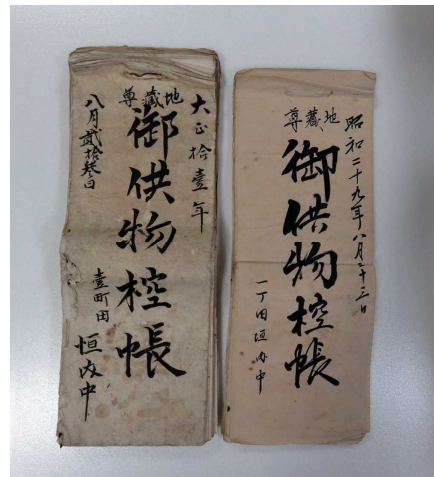 大正拾壹年
地藏尊
御供物控帳
八月貳拾叄日
壹町田
恒内中
昭和二十九年八月二十三日
地藏尊
御供物控帳
一丁田垣内中